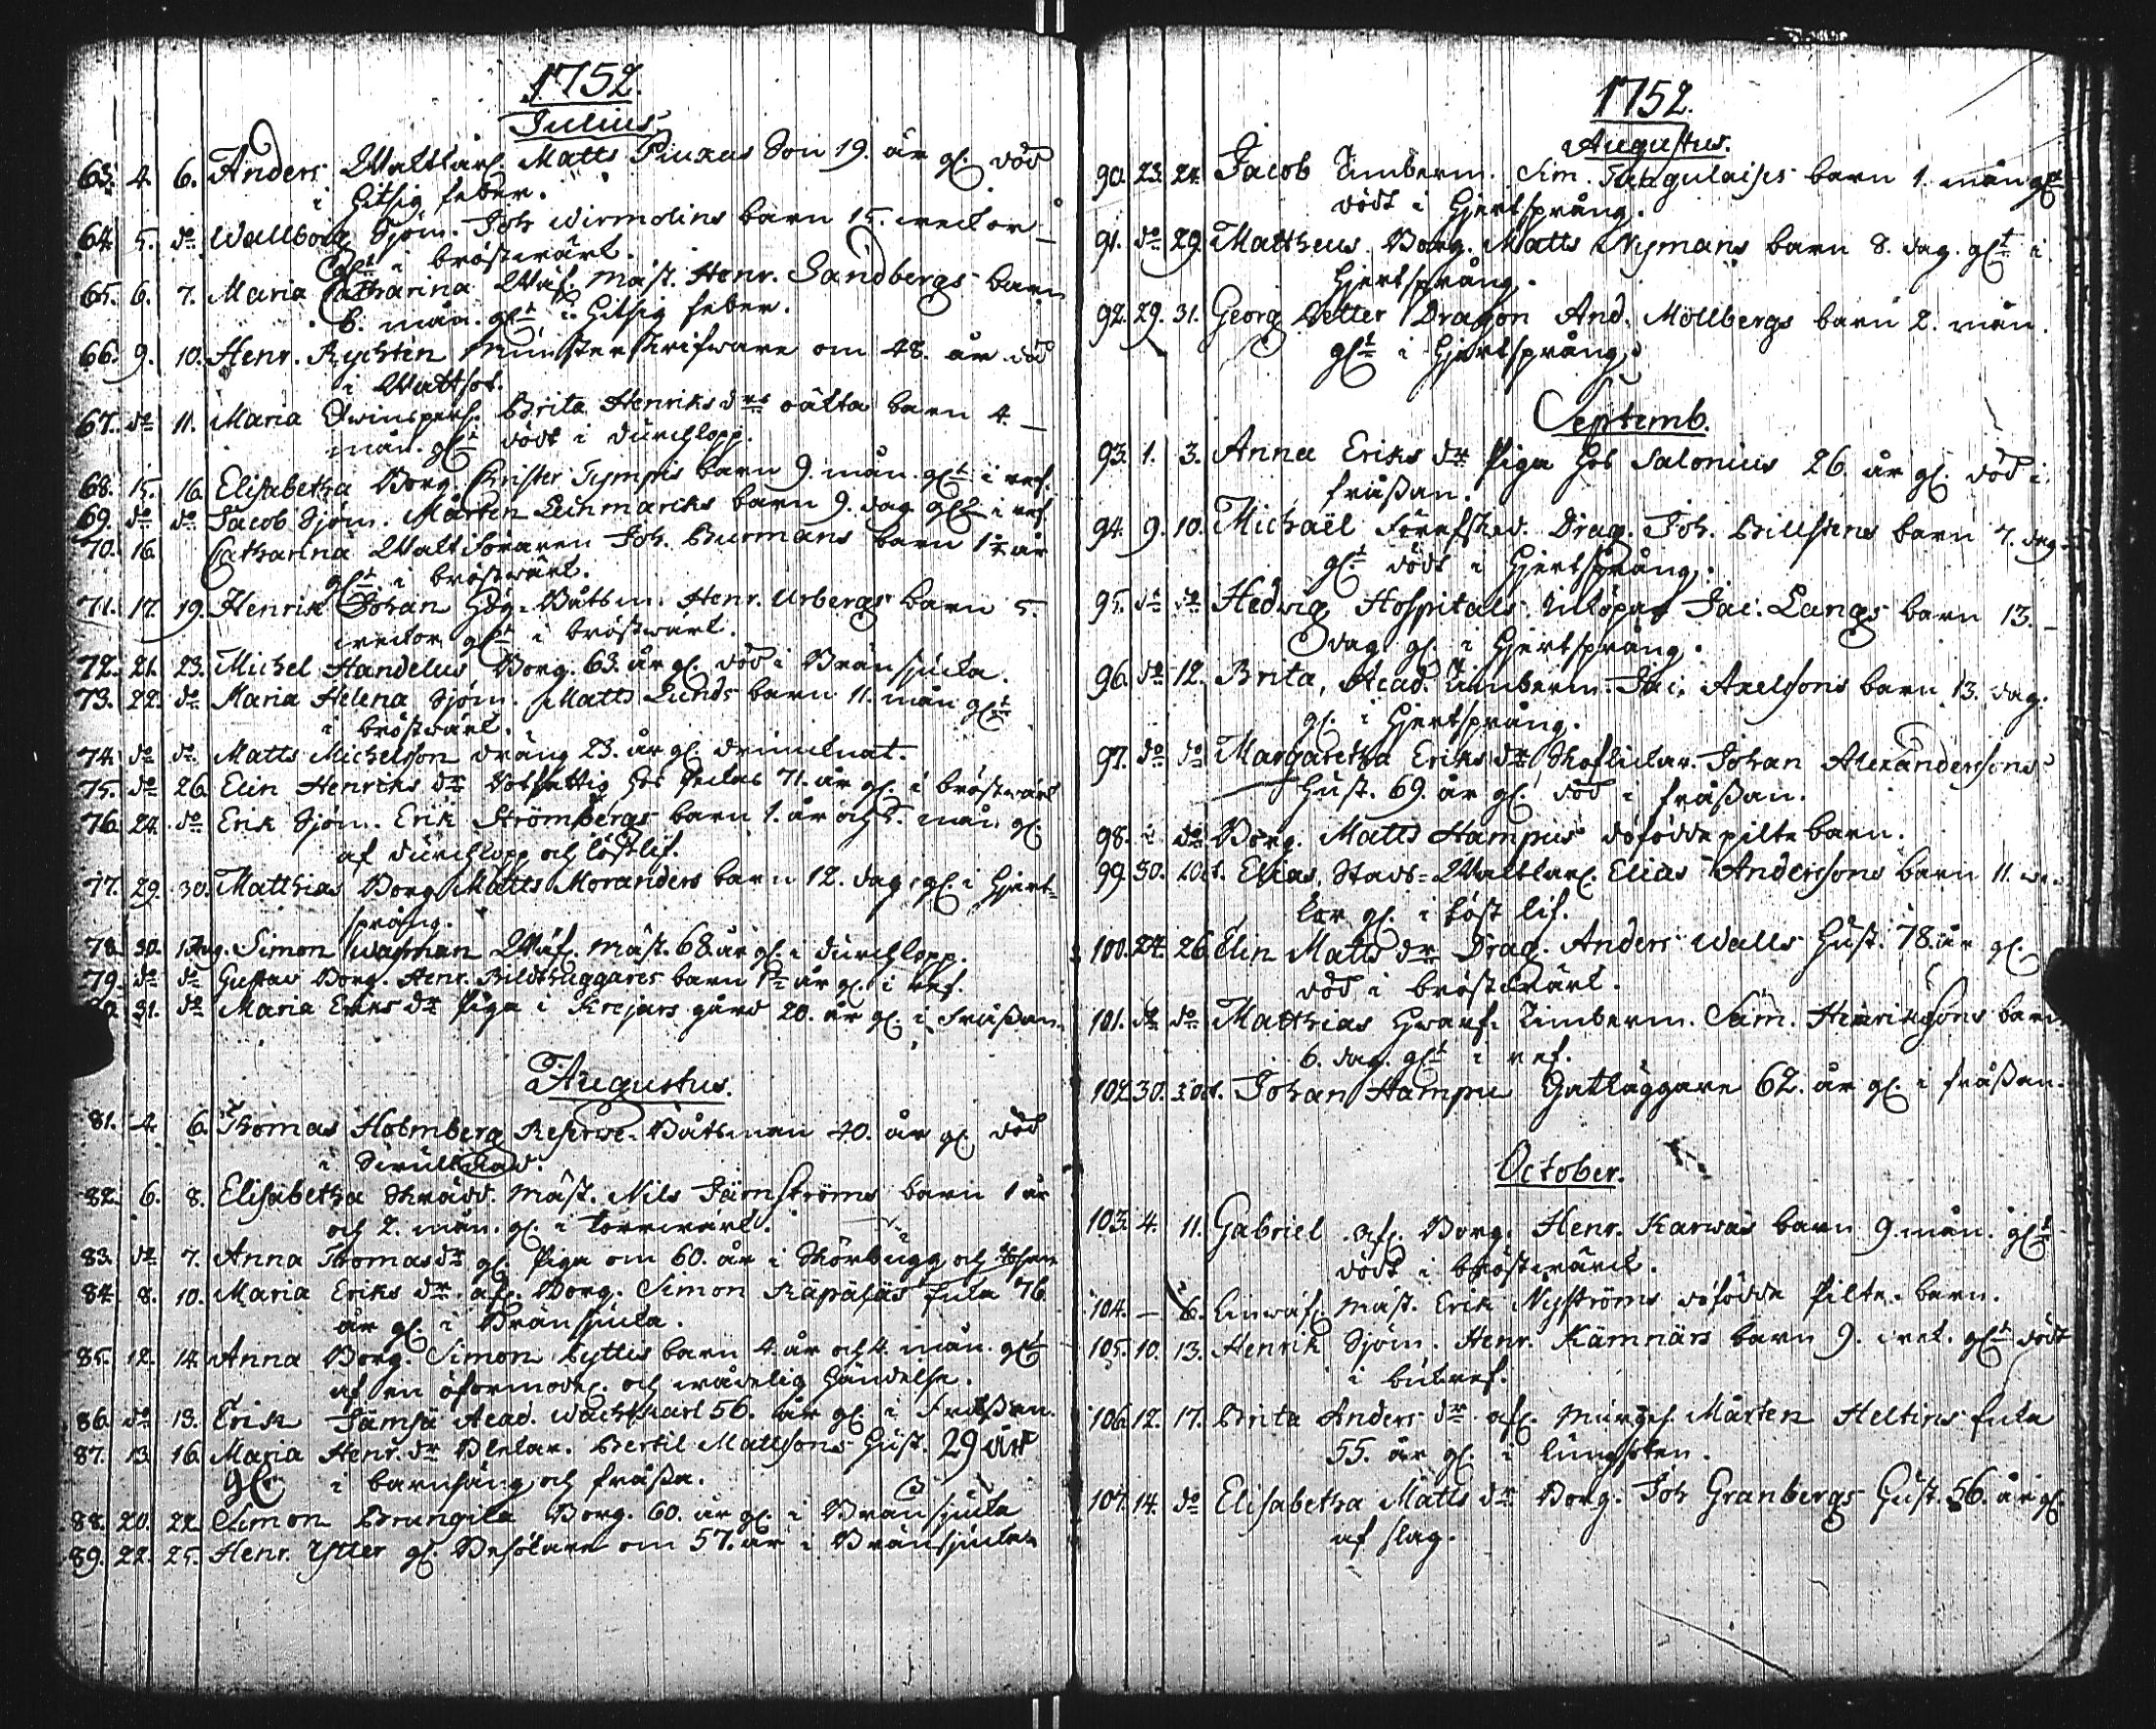 1752.
Julius
63. 4. 6. Anders Matts Son 19. år gl. död
i hitsig feber.
64. 5. do Wallborg Sjöm. Joh barn 15. weckor
glt i bröstwärk.
65. 6. 7. Maria Catharina Wäf. Mäst. Henr. Sandbergs barn
6. mån. glt i hitsig feber.
66. 9. 10. Henr. Munsterskrifware om 48. år död
i Wattsot.
67. do 11. Maria Qwinspers. Brita Henriksdrs oäkta barn 4.
mån. glt dödt i durchlopp.
68. 15. 16. Elisabetha Borg. Krister barn 9. mån. glt i ref.
69. do do Jacob Sjöm. Mårten barn 9. dag. glt i ref
70. 16. Catharina Joh. Burmans barn 1 år
glt i bröstwärk.
71. 17. 19. Henrik Johan Båtsm. Henr. Urbergs barn 5.
weckor glt i bröstwärk.
72. 21. 23. Michel Handelus Borg. 63. år gl. död i Brännsjuka.
73. 22. do Maria Helena Sjöm. Matts Lunds barn 11. mån glt
i bröstwärk.
74. do do Matts Michelsson dräng 23. år gl. drunknat.
75. do 26. Elin Henriks dr hos 71. år gl. i bröstwärk
76. 24. do Erik Sjöm. Erik Strömbergs barn 1. år och mån. gl.
af durchlopp och löstlif.
77. 29. 30. Matthias Borg. Matts Moranders barn 12. dag. gl. i hjert=
språng.
78. 30. 1 Aug. Simon Wäf. Mäst. 68. år gl. i durchlopp.
79. do do Gustav Borg. Henr. Bildthuggares barn år gl. i ref.
31. do Maria Eriks dr Piga i gård 20. år gl. i fråssan.
Augustus.
81. 4. 6. Thomas Holmberg Reserve-Båtsman 40. år gl. död
i
82. 6. 8. Elisabetha Skrädd. Mäst. Nils Järnströms barn 1 år
och 2. mån. gl. i torrwärk.
83. do 7. Anna Thomasdr gl. Piga om 60. år i Skörbugg och
84. 8. 10. Maria Eriks dr afl. Borg. Simon Räpäläs enka 76
år gl. i Brännsjuka.
85. 12. 14. Anna Borg. Simon Kyttis barn 4. år och 4. mån. glt
af en oförmodel. och wådelig händelse.
86. do 13. Erik Jämsä Acad. Wachtkarl 56. år gl. i Fråssan.
87. 13. 16. Maria Henr. dr Bertil Mattssons Hust. 29 år
gl. i barnsäng och fråssa.
88. 20. 22. Simon Brungila Borg. 60. år gl. i Brännsjuka
89. 22. 25. Henr. Ytter gl. Besökare om 57. år i Brännsjukan
1752.
Augustus.
90. 23. 24. Jacob Timberm. Sim. barn 1. mån glt
dödt i hjertsprång.
91. do 29. Mattheus Borg. Matts Nymans barn 8. dag. glt i
hjertsprång.
92. 29. 31. Georg Petter Dragon And. Möllbergs barn 2. mån.
glt i hjertsprång.
Septemb.
93. 1. 3. Anna Eriks dr Piga hos Salonius 26. år gl. död i
fråssan.
94. 9. 10. Michaël Drag. Joh. Billstens barn 7. dag.
glt dödt i hjertsprång.
95. do do Hedwig Hospitals Jac. Langs barn 13.
dag gl. i hjertsprång.
96. do 12. Brita, Acad. Timberm. Jac. Axelsons barn 13. dag.
gl. i hjertsprång.
97. do do Margaretha Eriks dr Skoflickar. Johan Alexanderssons
Hust. 69. år gl. död i fråssan.
98. do Borg. Matts Hampus döfödde piltebarn.
99. 30. 1 Oct. Elias Stads= Elias Anderssons barn 11. we=
kor gl. i löst lif.
100. 24. 26. Elin Matts dr Drag. Anders Walls Hust. 78. år gl.
död i bröstwärk.
101. do do Matthias Timberm. Sam. Henrikssons barn
6. dag. glt i ref.
102. 30. 3 Oct. Johan Hampu Gatläggare 62. år gl. i fråssan.
October.
103. 4. 11. Gabriel afl. Borg. Henr. Karwas barn 9. mån. glt
dödt i bröstwärk.
104. — 6. Linwäf. Mäst. Erik Nyströms döfödde Pilte-barn.
105. 10. 13. Henrik Sjöm. Henr. Kämnärs barn 9. wek. glt dödt
i bukref.
106. 12. 17. Brita Anders dr afl. Murges. Mårten Heltins enka
55. år gl. i lungsoten.
107. 14. do Elisabetha Matts dr Borg. Joh Granbergs Hust. 56. år gl.
af slag.